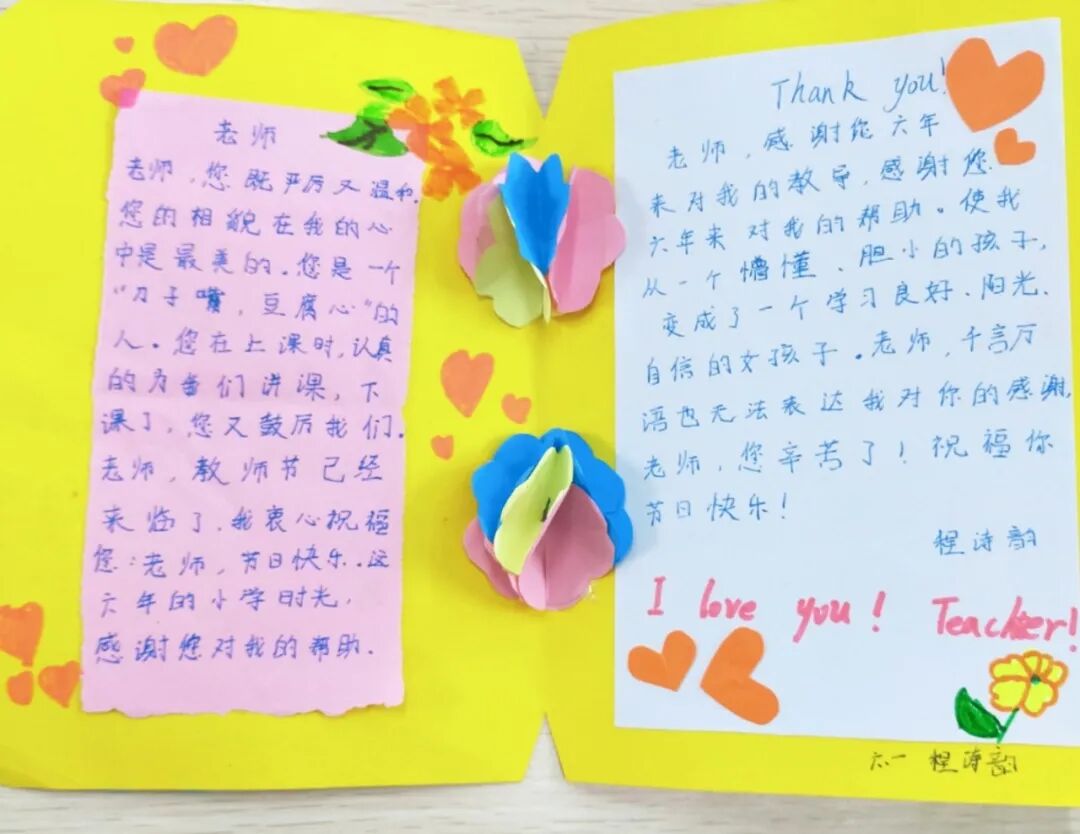 老师
老师，您既严厉又温和.
您的相貌在我的心
中是最美的。您是一个
“刀子嘴，豆腐心”的
人。您在上课时，认真
的为我们讲课，下
课了，您又鼓厉我们.
老师，教师节已经
来临了，我衷心祝福
您：老师，节日快乐.这
六年的小学时光，
感谢您对我的帮助.
Thank you!
老师，感谢您六年
来对我的教导，感谢您
六年来对我的帮助。使我
从一个懵懂、胆小的孩子，
变成了一个学习良好、阳光、
自信的女孩子。老师，千言万
语也无法表达我对你的感谢，
老师，您辛苦了！祝福你
节日快乐！
程诗韵
I love you! Teacher!
六.一 程诗韵